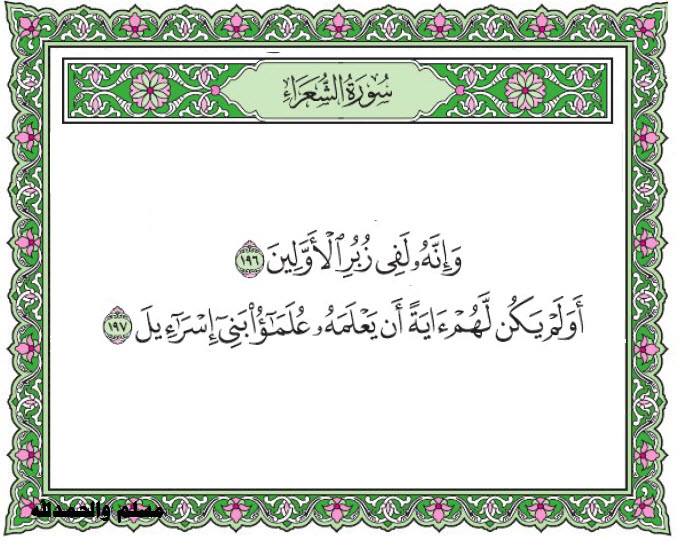 سُورَةُ الشُّعَرَاءِ
وَإِنَّهُۥ لَفِى زُبُرِ ٱلْأَوَّلِينَ ١٩٦
أَوَلَمْ يَكُن لَّهُمْ ءَايَةً أَن يَعْلَمَهُۥ عُلَمَٰٓؤُا۟ بَنِىٓ إِسْرَٰٓءِيلَ ١٩٧
مسلم والحمدلله